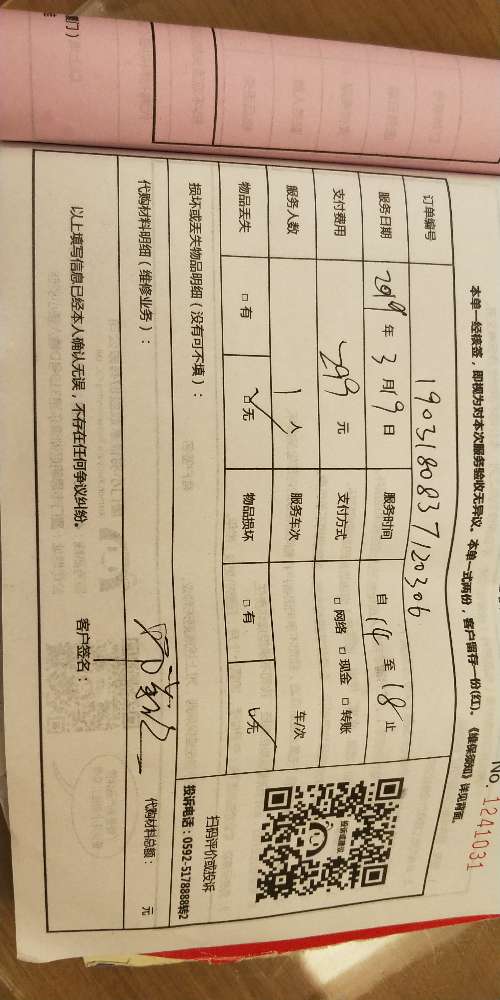 No. 1241031
本单一经核签，即视为对本次服务验收无异议。本单一式两份，客户留存一份(红)。《维保须知》详见背面。
订单编号 190318083712030b
服务日期 2019 年 3 月 19 日 服务时间 自 14 至 18 止
支付费用 299 元 支付方式 □ 网络 □ 现金 □ 转账
服务人数 1 人 服务车次 车/次
物品丢失 □ 有 □ 无 物品损坏 □ 有 □ 无
投诉或建议
扫码评价或投诉
投诉电话：0592-5178888转2
损坏或丢失物品明细（没有可不填）：
代购材料明细（维修业务）：
代购材料总额： 元
以上填写信息已经本人确认无误，不存在任何争议纠纷。 客户签名：